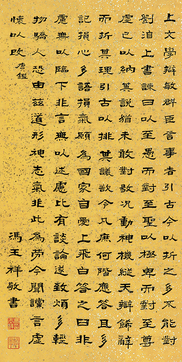 上文學辯敏群臣言事者引古今以折之多不能對
劉洎上書諫曰以至愚而對至聖以極卑而對至尊
虛己以納其說猶未敢對況動神機縱天辯飾辭
而折其理引古以排其議欲令凡庶何階應答且多
記損心多語損氣願為國家自愛上飛白答之曰非
慮無以臨下非言無以述慮比有談論遂致煩多輕
物驕人恐由茲道形神志氣非此為勞今聞讜言虛
懷以改 唐鑑
馮玉祥敬書